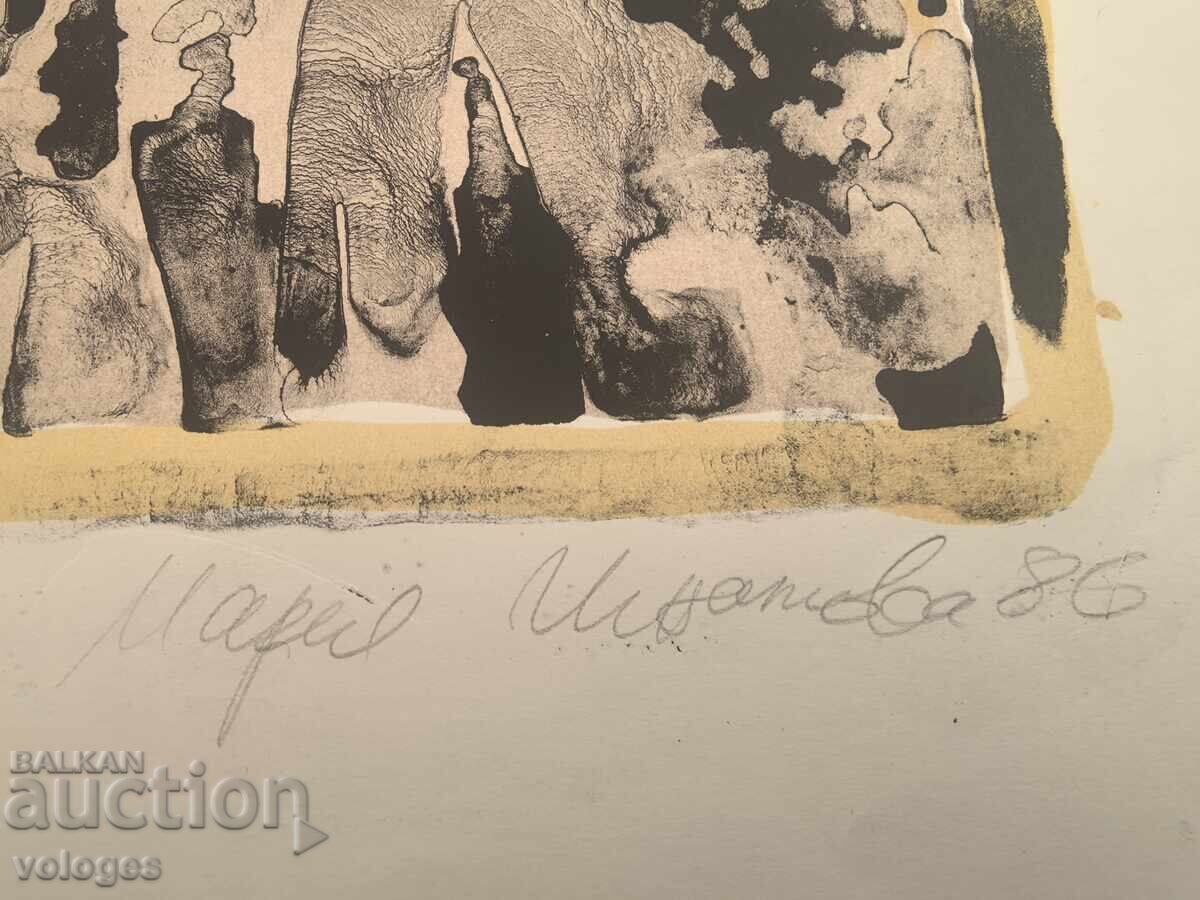 Мария Игнатова 86
BALKAN
auction
vologes